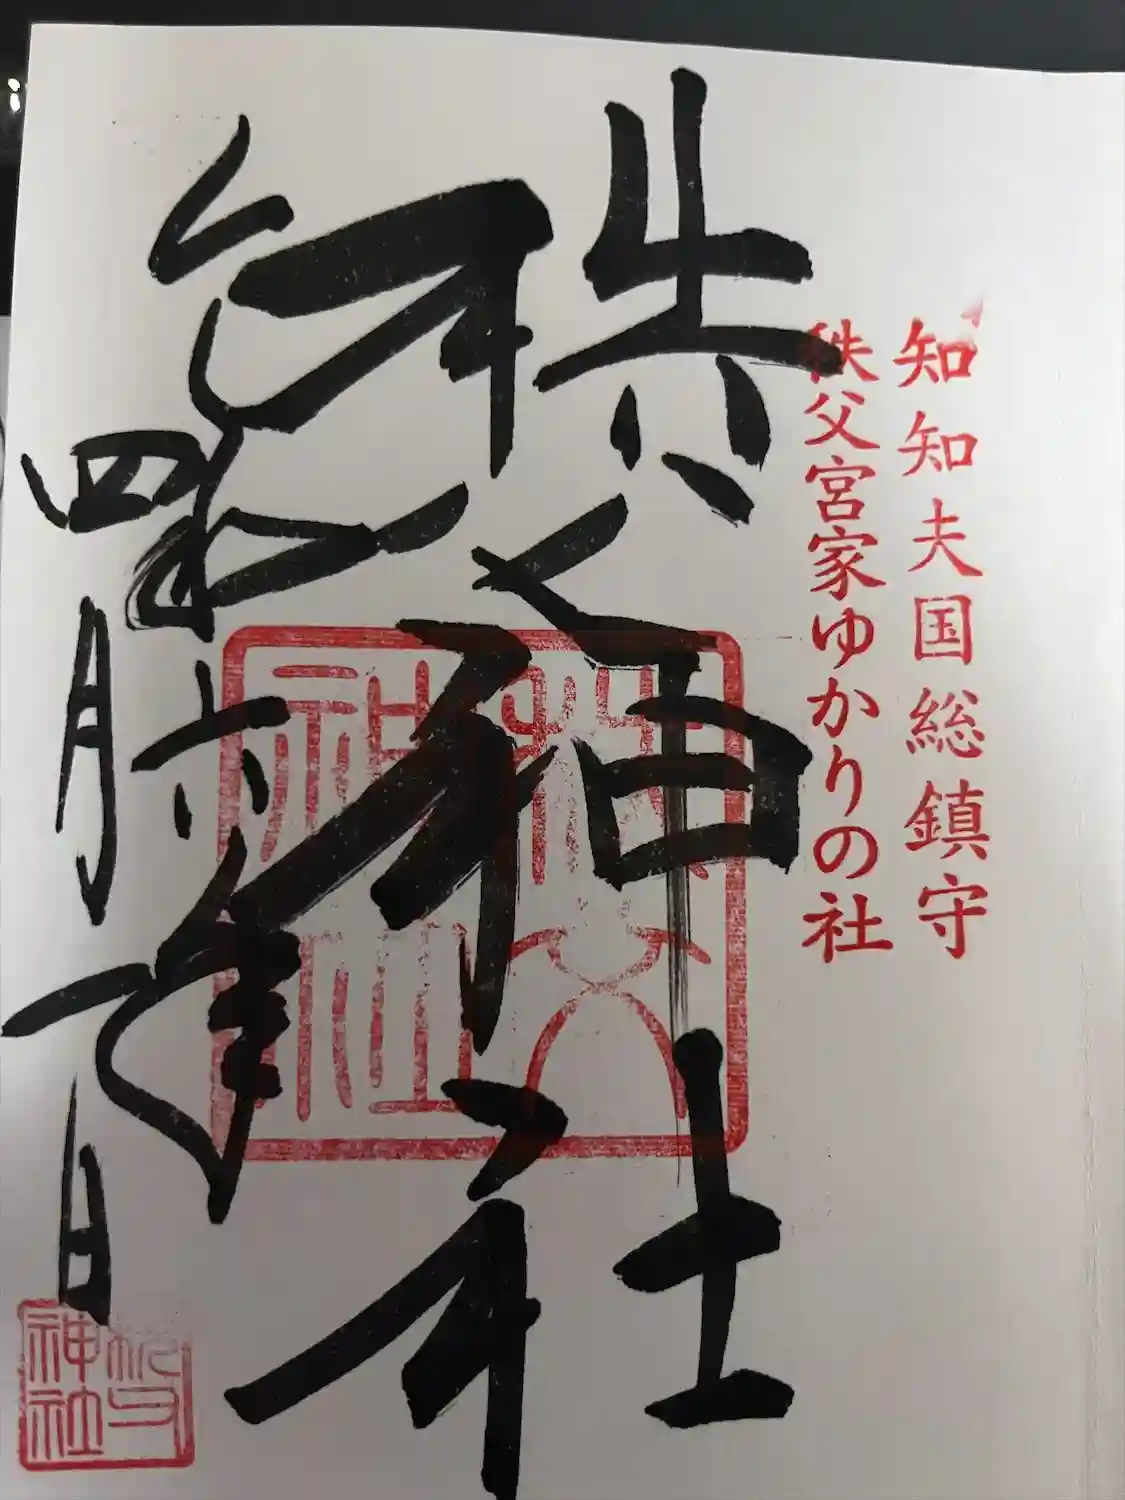 知知夫国総鎮守
秩父宮家ゆかりの社
秩父神社
令和六年
四月二日
秩父神社
神社